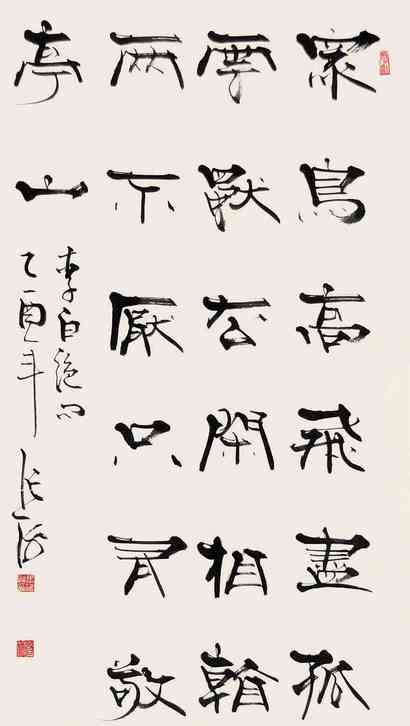 眾鳥高飛盡孤
雲獨去閑相看
兩不厭只有敬
亭山
李白絕句
乙酉年 張海